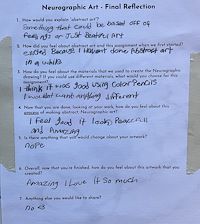 Neurographic Art - Final Reflection
1. How would you explain "abstract art"?
Something that could be based off of
Feelings or Just Beatiful art
2. How did you feel about abstract art and this assignment when we first started?
exiting Because I Havent done Abstract art
in a while
3. How do you feel about the materials that we used to create the Neurographic
drawing? If you could use different materials, what would you choose for this
I think it was good using Color Pencils
I would not want anything different
4. Now that you are done, looking at your work, how do you feel about this
process of making abstract Neurographic Art?
I Feel good it looks Peacefull
and Amazing
5. Is there anything that you would change about your artwork?
nope
6. Overall, now that you're finished, how do you feel about this artwork that you
created?
Amazing I Love it So much
7. Anything else you would like to share?
no <3